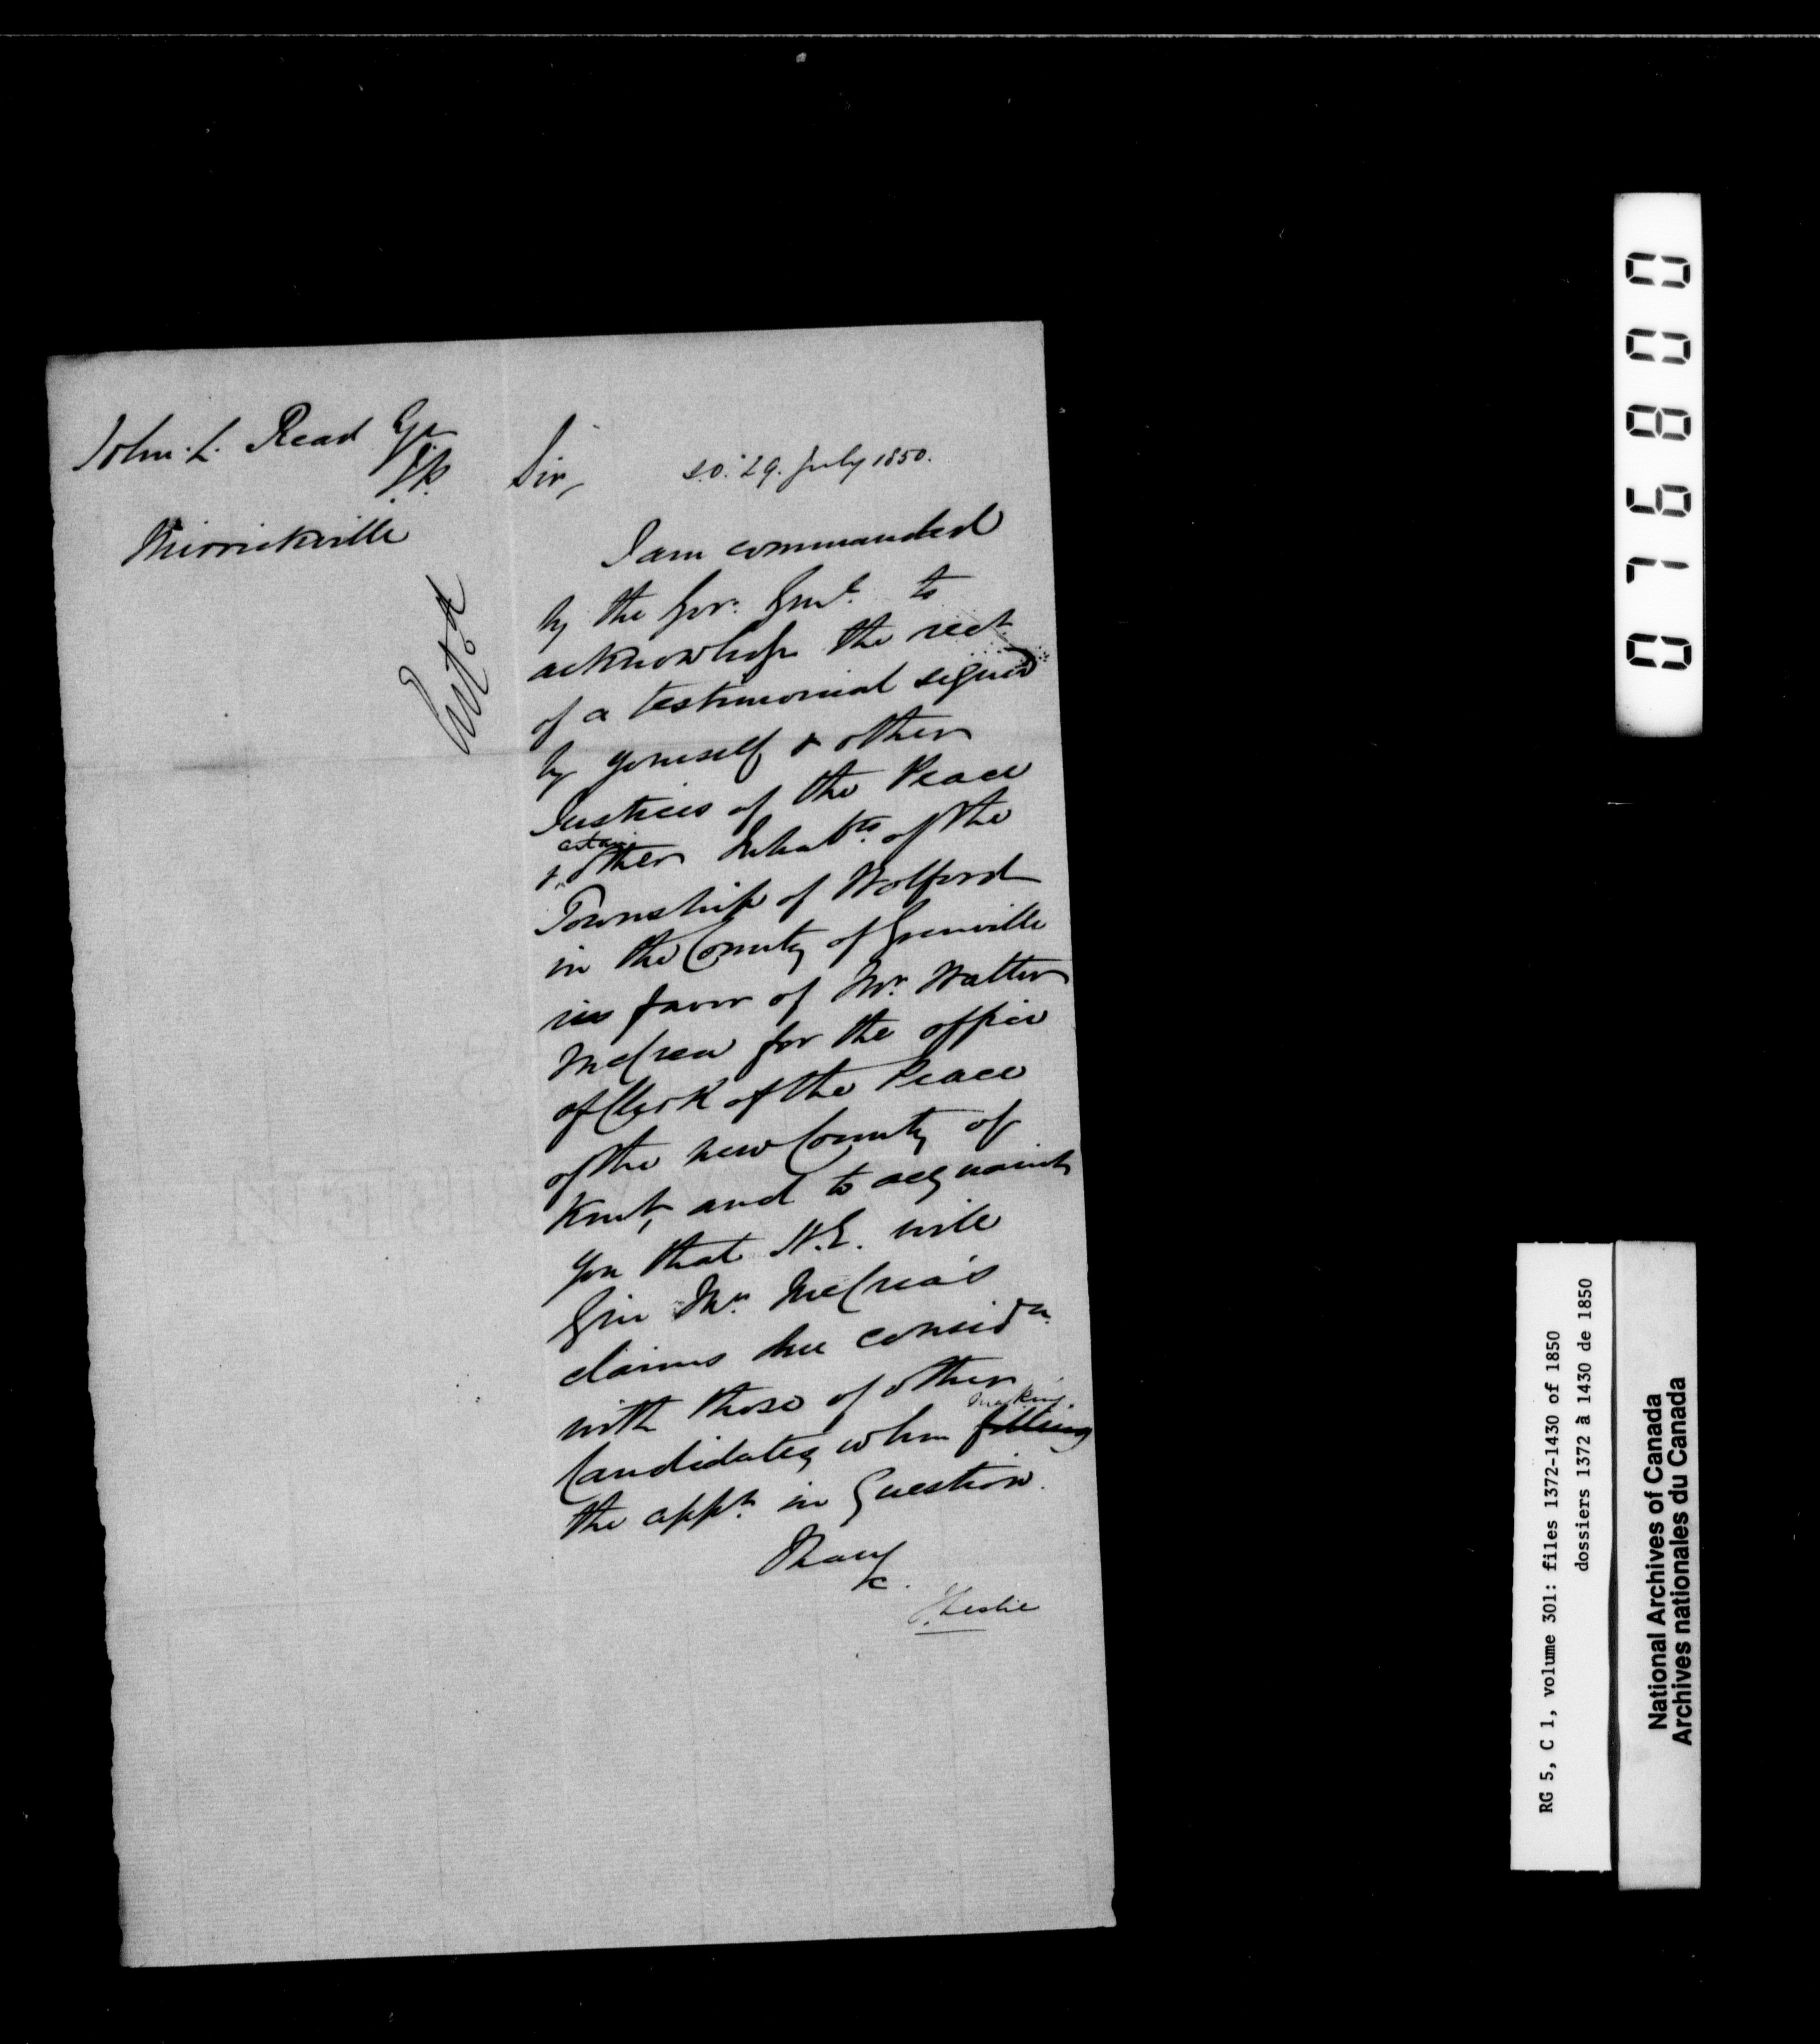 John. L. Read Esqr
J.P.
Merrickville
Entd
Sir,
S.O. 29. July 1850.
I am commanded
by the Govr. Genl. to
acknowledge the rect
of a testimonial signed
by yourself & other
Justices of the Peace
certain
& other Inhabts. of the
Township of Wolford
in the County of Grenville
in favor of Mr. Walter
McCrea for the office
of Clerk of the Peace
of the new County of
Kent, and to acquaint
you that H.E. will
give Mr. McCrea's
claims due considn.
with those of other
making
Candidates when filling
the appt. in Question.
I have
&c.
J. Leslie
076800
RG 5, C 1, volume 301: files 1372-1430 of 1850
dossiers 1372 à 1430 de 1850
National Archives of Canada
Archives nationales du Canada